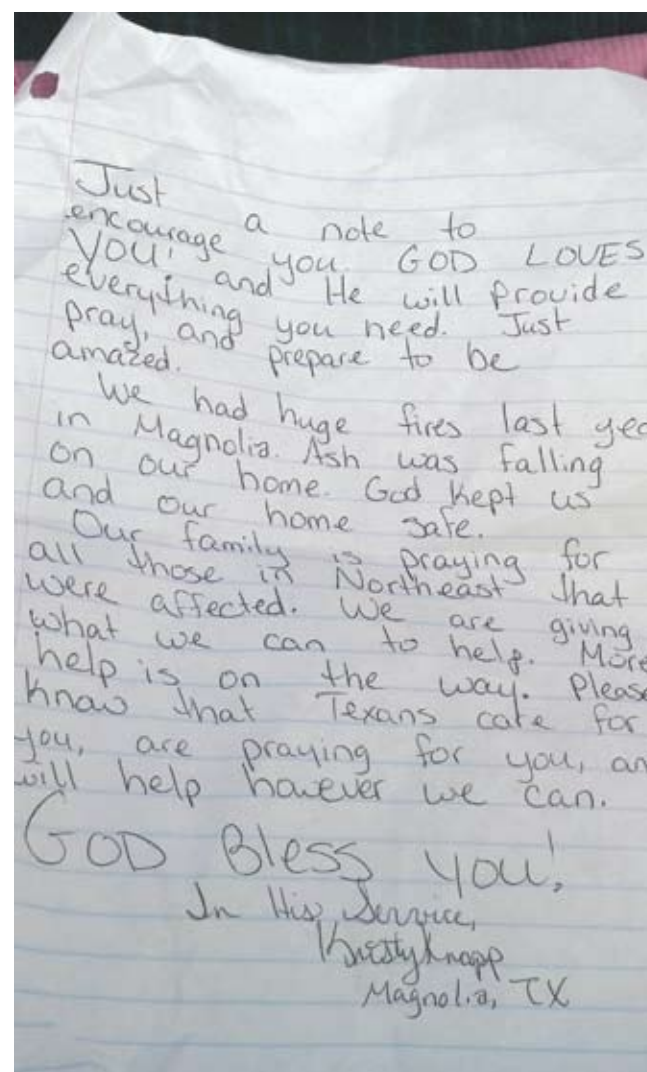 Just a note to
encourage you. GOD LOVES
YOU! and He will provide
everything you need. Just
pray, and prepare to be
amazed.
We had huge fires last yea
in Magnolia. Ash was falling
on our home. God kept us
and our home safe.
Our family is praying for
all those in Northeast that
were affected. We are giving
what we can to help. More
help is on the way. Please
know that Texans care for
you, are praying for you, an
will help however we can.
GOD Bless you!
In His Service,
Kristy Knapp
Magnolia, TX